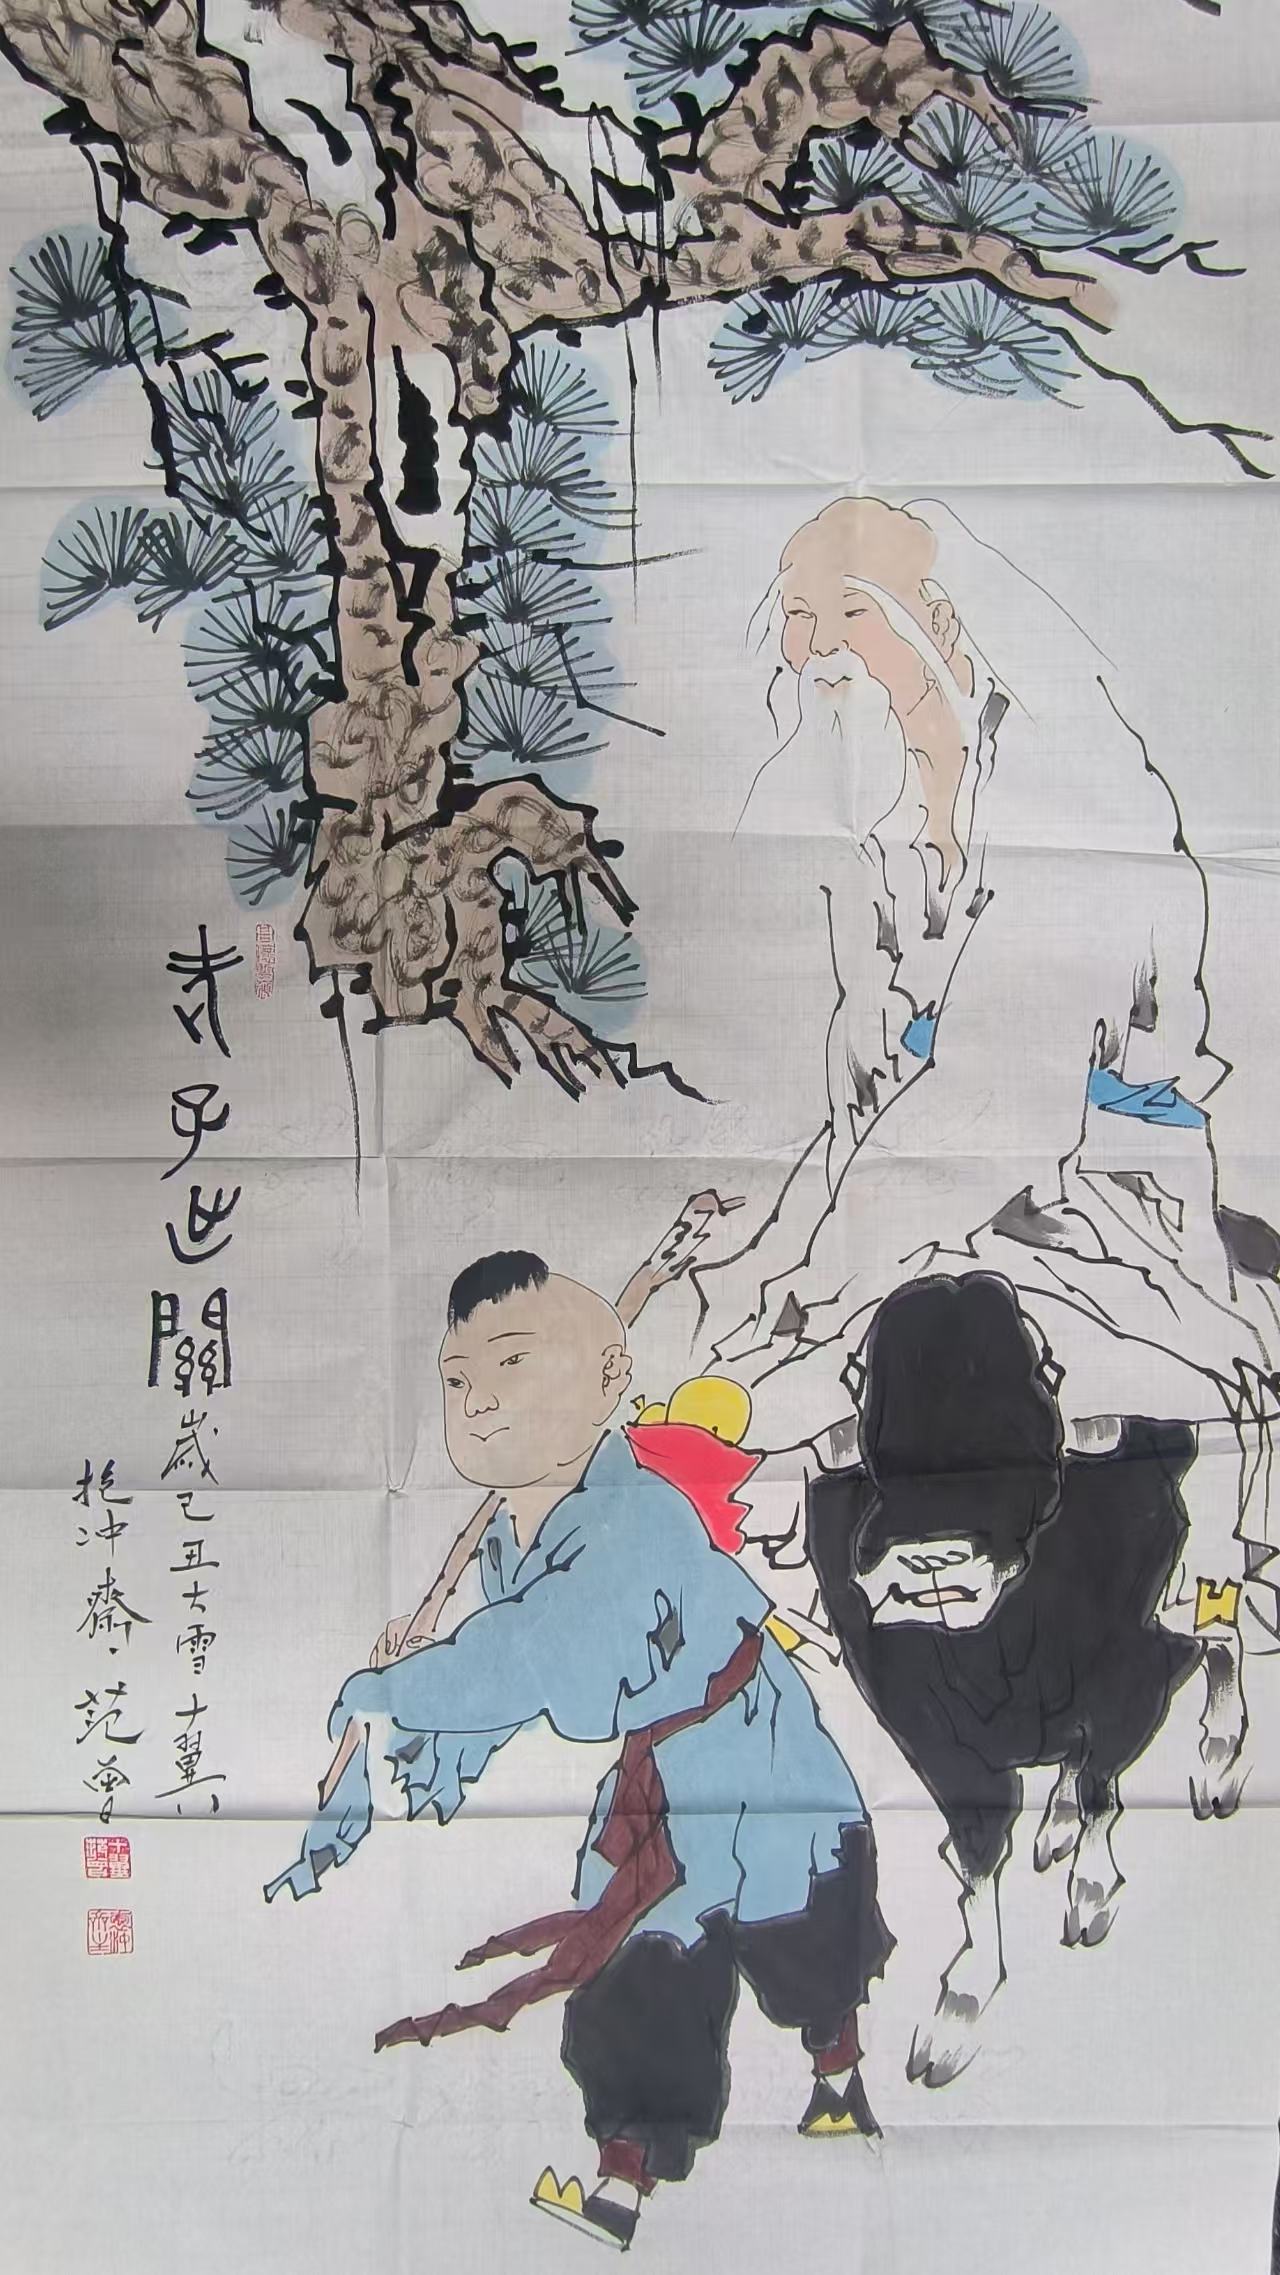 老子出關歲己丑大雪十翼
抱冲齋范曾